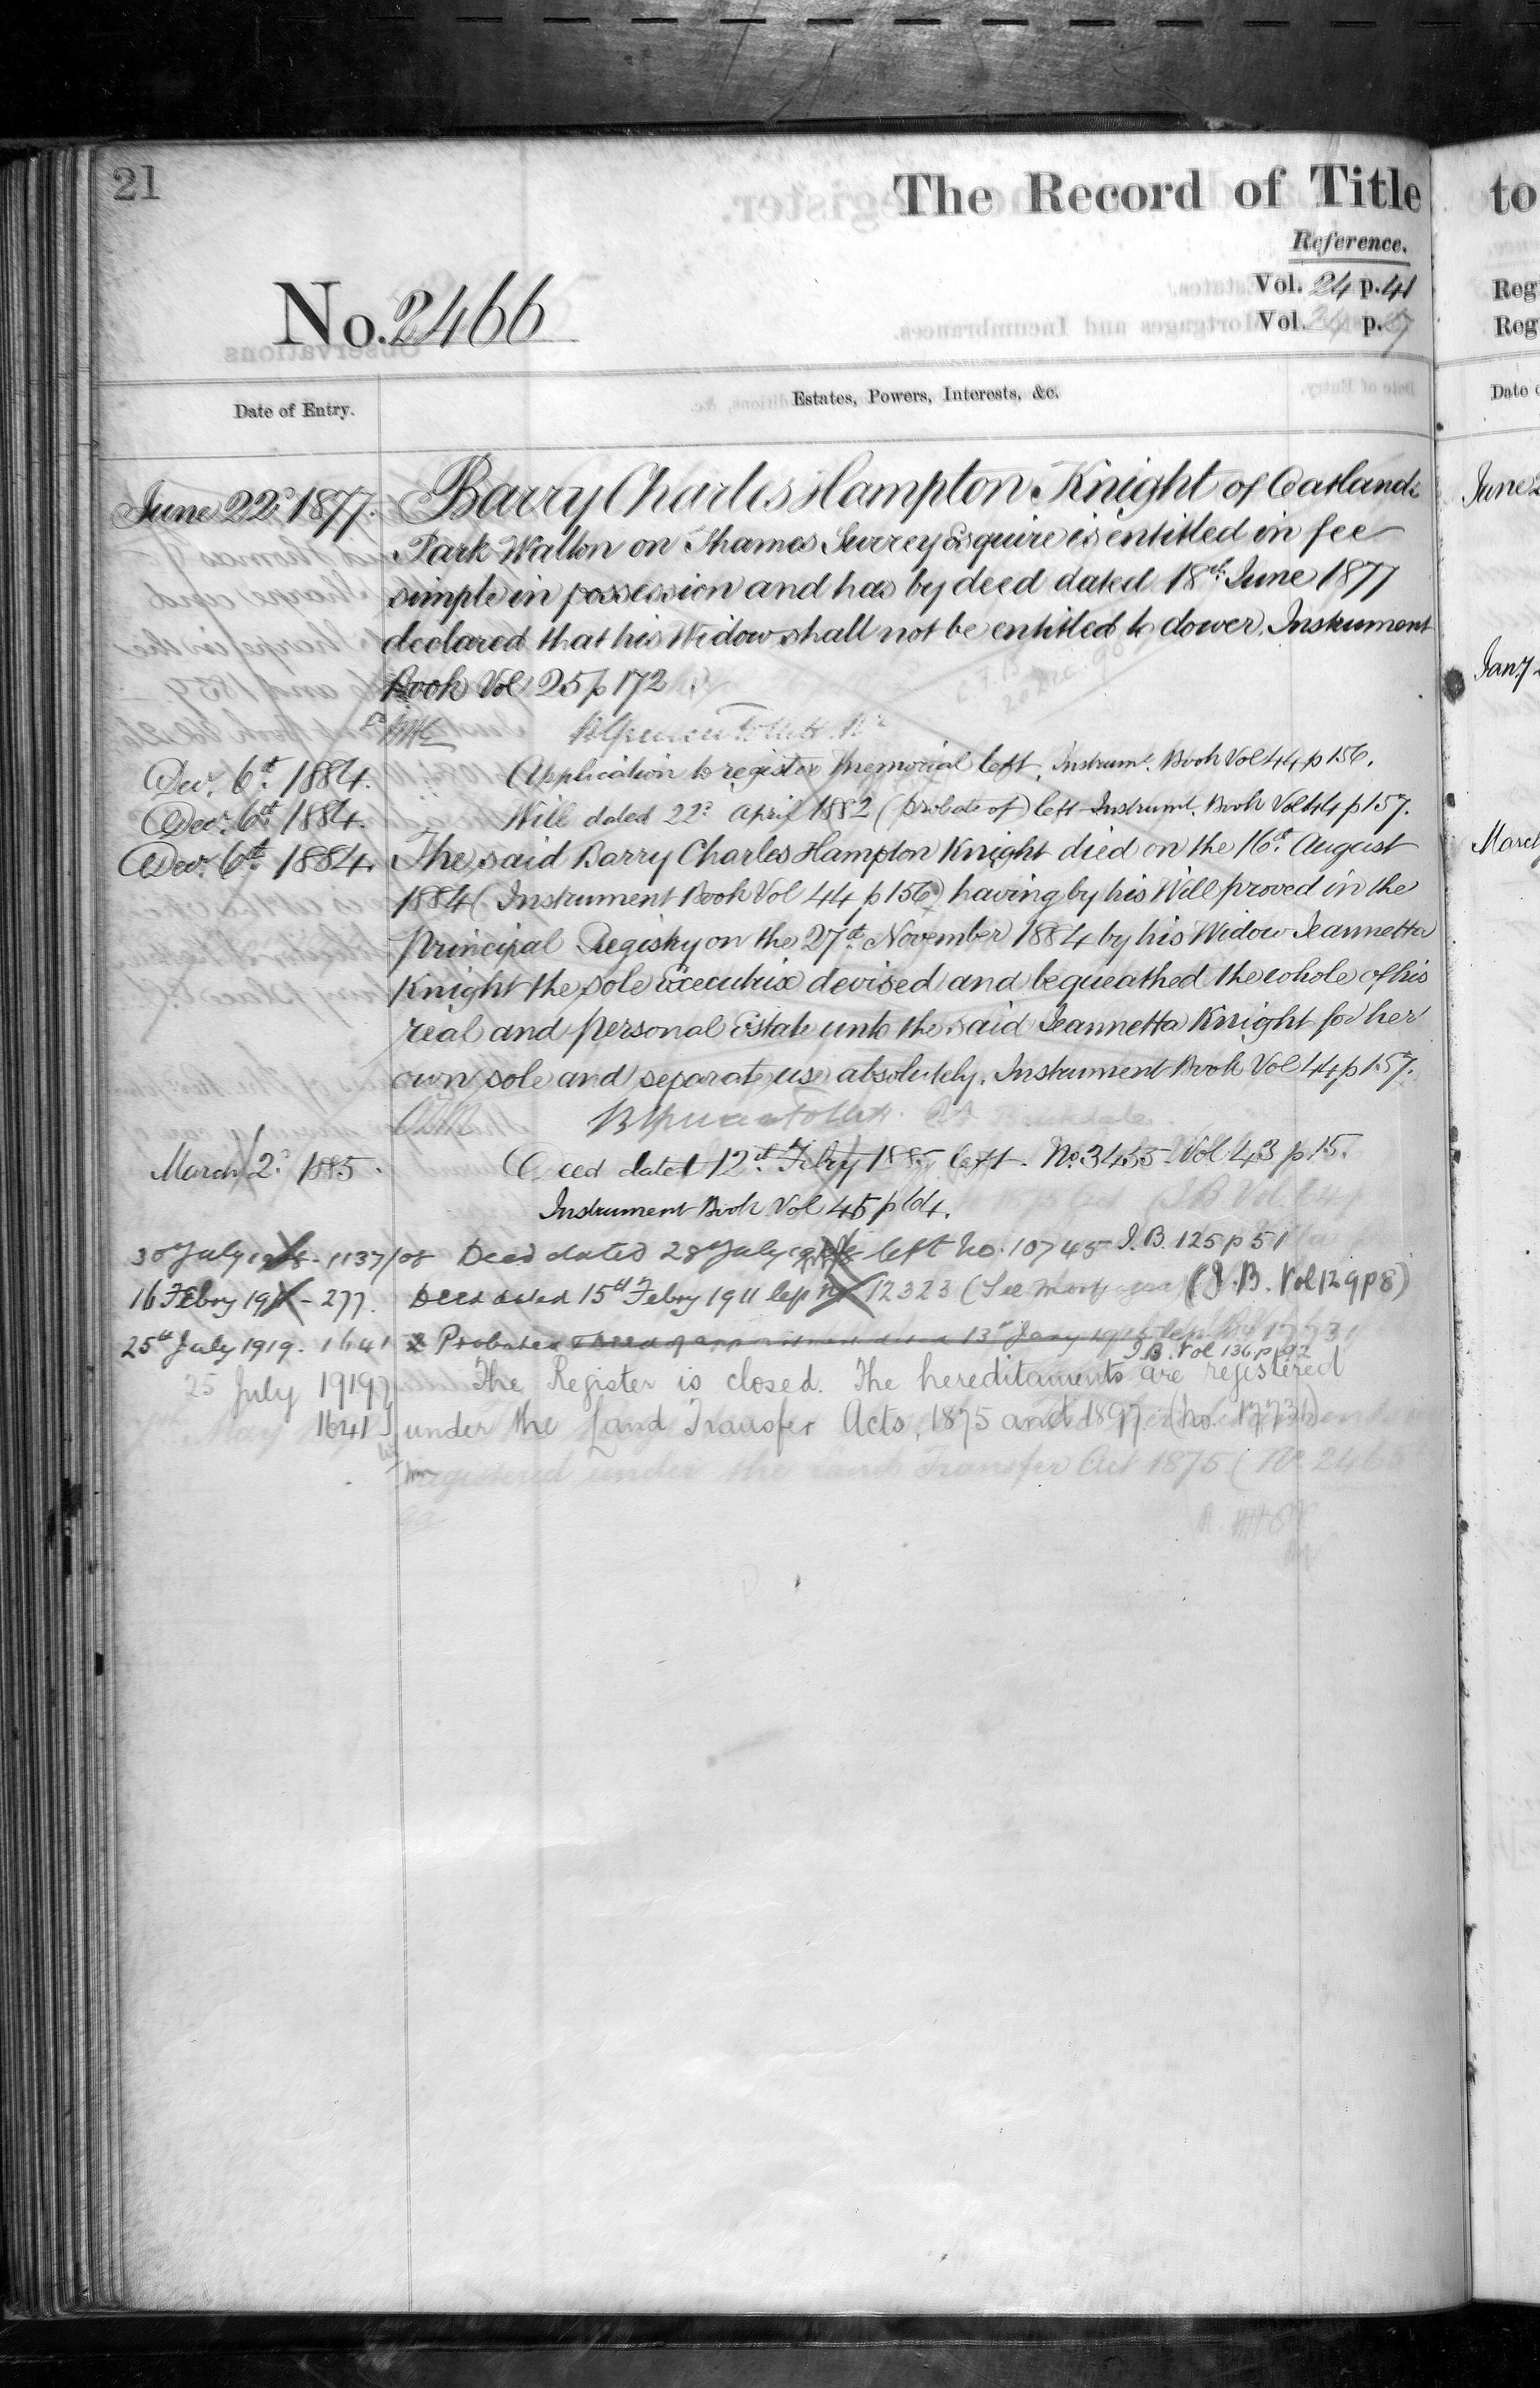 21
The Record of Title
Reference.
Vol. 24 p. 41
Vol. 34 p.
No. 2466
Date of Entry.
Estates, Powers, Interests, &c.
June 22d 1877. Barry Charles Hampton Knight of Oatlands
Park Walton on Thames Surrey Esquire is entitled in fee
simple in possession and has by deed dated 18th June 1877
declared that his Widow shall not be entitled to dower. Instrument
Book Vol 25 p 172.
Dec. 6th 1884. Application to register Memorial left. Instrumt. Book Vol 44 p 156.
Dec. 6th 1884. Will dated 22d April 1882 (probate of) left Instrumt. Book Vol 44 p 157.
Dec. 6th 1884. The said Barry Charles Hampton Knight died on the 16th August
1884 (Instrument Book Vol 44 p 156) having by his Will proved in the
Principal Registry on the 27th November 1884 by his Widow Jeannetta
Knight the sole Executrix devised and bequeathed the whole of his
real and personal Estate unto the said Jeannetta Knight for her
own sole and separate use absolutely. Instrument Book Vol 44 p 157.
March 2d 1885. Deed dated 12th Febry 1885 left. No. 3455 Vol 43 p 15.
Instrument Book Vol 45 p 64.
30th July 1908 - 1137/08 Deed dated 28th July left No. 10745 I.B. 125 p 51
16 Febry 1911 - 277. Deed dated 15th Febry 1911 left No 12323 (See Mortgages) (I.B. Vol 129 p 8)
25th July 1919. 1641 2 Probates & Deed of appointment dated 13th Jany left No 17731
I.B. Vol 136 p 92
25 July 1919 The Register is closed. The hereditaments are registered
1641 under the Land Transfer Acts, 1875 and 1897 (No. 17731)
to
Reg
Reg
Date o
June 2
Jany
March